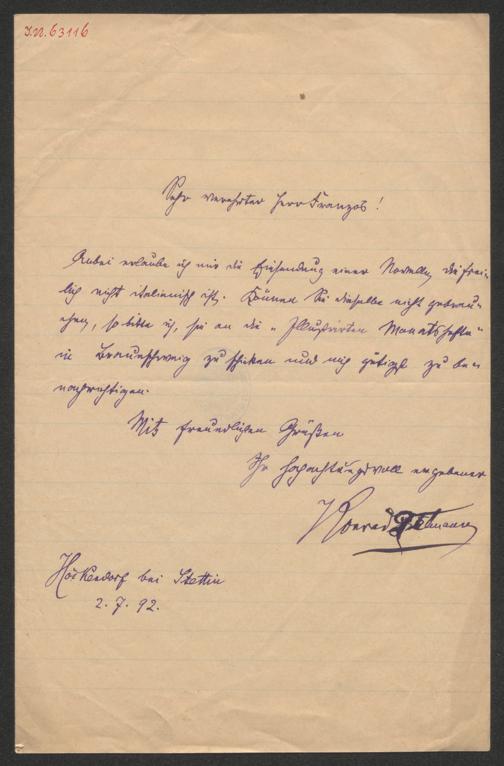 I.N. 63116
Sehr verehrter Herr Franzos!
Anbei erlaube ich mir die Einsendung einer Novelle, die frei-
lich nicht italienisch ist. Können Sie dieselbe nicht gebrau-
chen, so bitte ich, sie an die „Illustrirten Monatshefte“
in Braunschweig zu schicken und mich gütigst zu be-
nachrichtigen.
Mit freundlichen Grüßen
Ihr hochachtungsvoll ergebener
Konrad Telmann
Höckendorf bei Stettin
2. 7. 92.